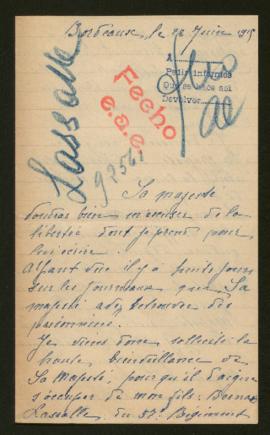 Bordeaux, le 28 Juin 1915
A
Pedir informes
Que se hace asi
Devolver
Fecho
e.a.e
Lassalle
92561
Sa majesté
voudra bien m'excuser de la
liberté dont je prend pour
lui écrire.
Ayant vue il y a huit jours
sur les journeaux que Sa
majesté a des des
prisonniers.
Je viens donc sollicité la
haute bienveillance de
Sa Majesté, pour qu'il daigne
s'occuper de mon fils
Lassalle du 57e Régiment